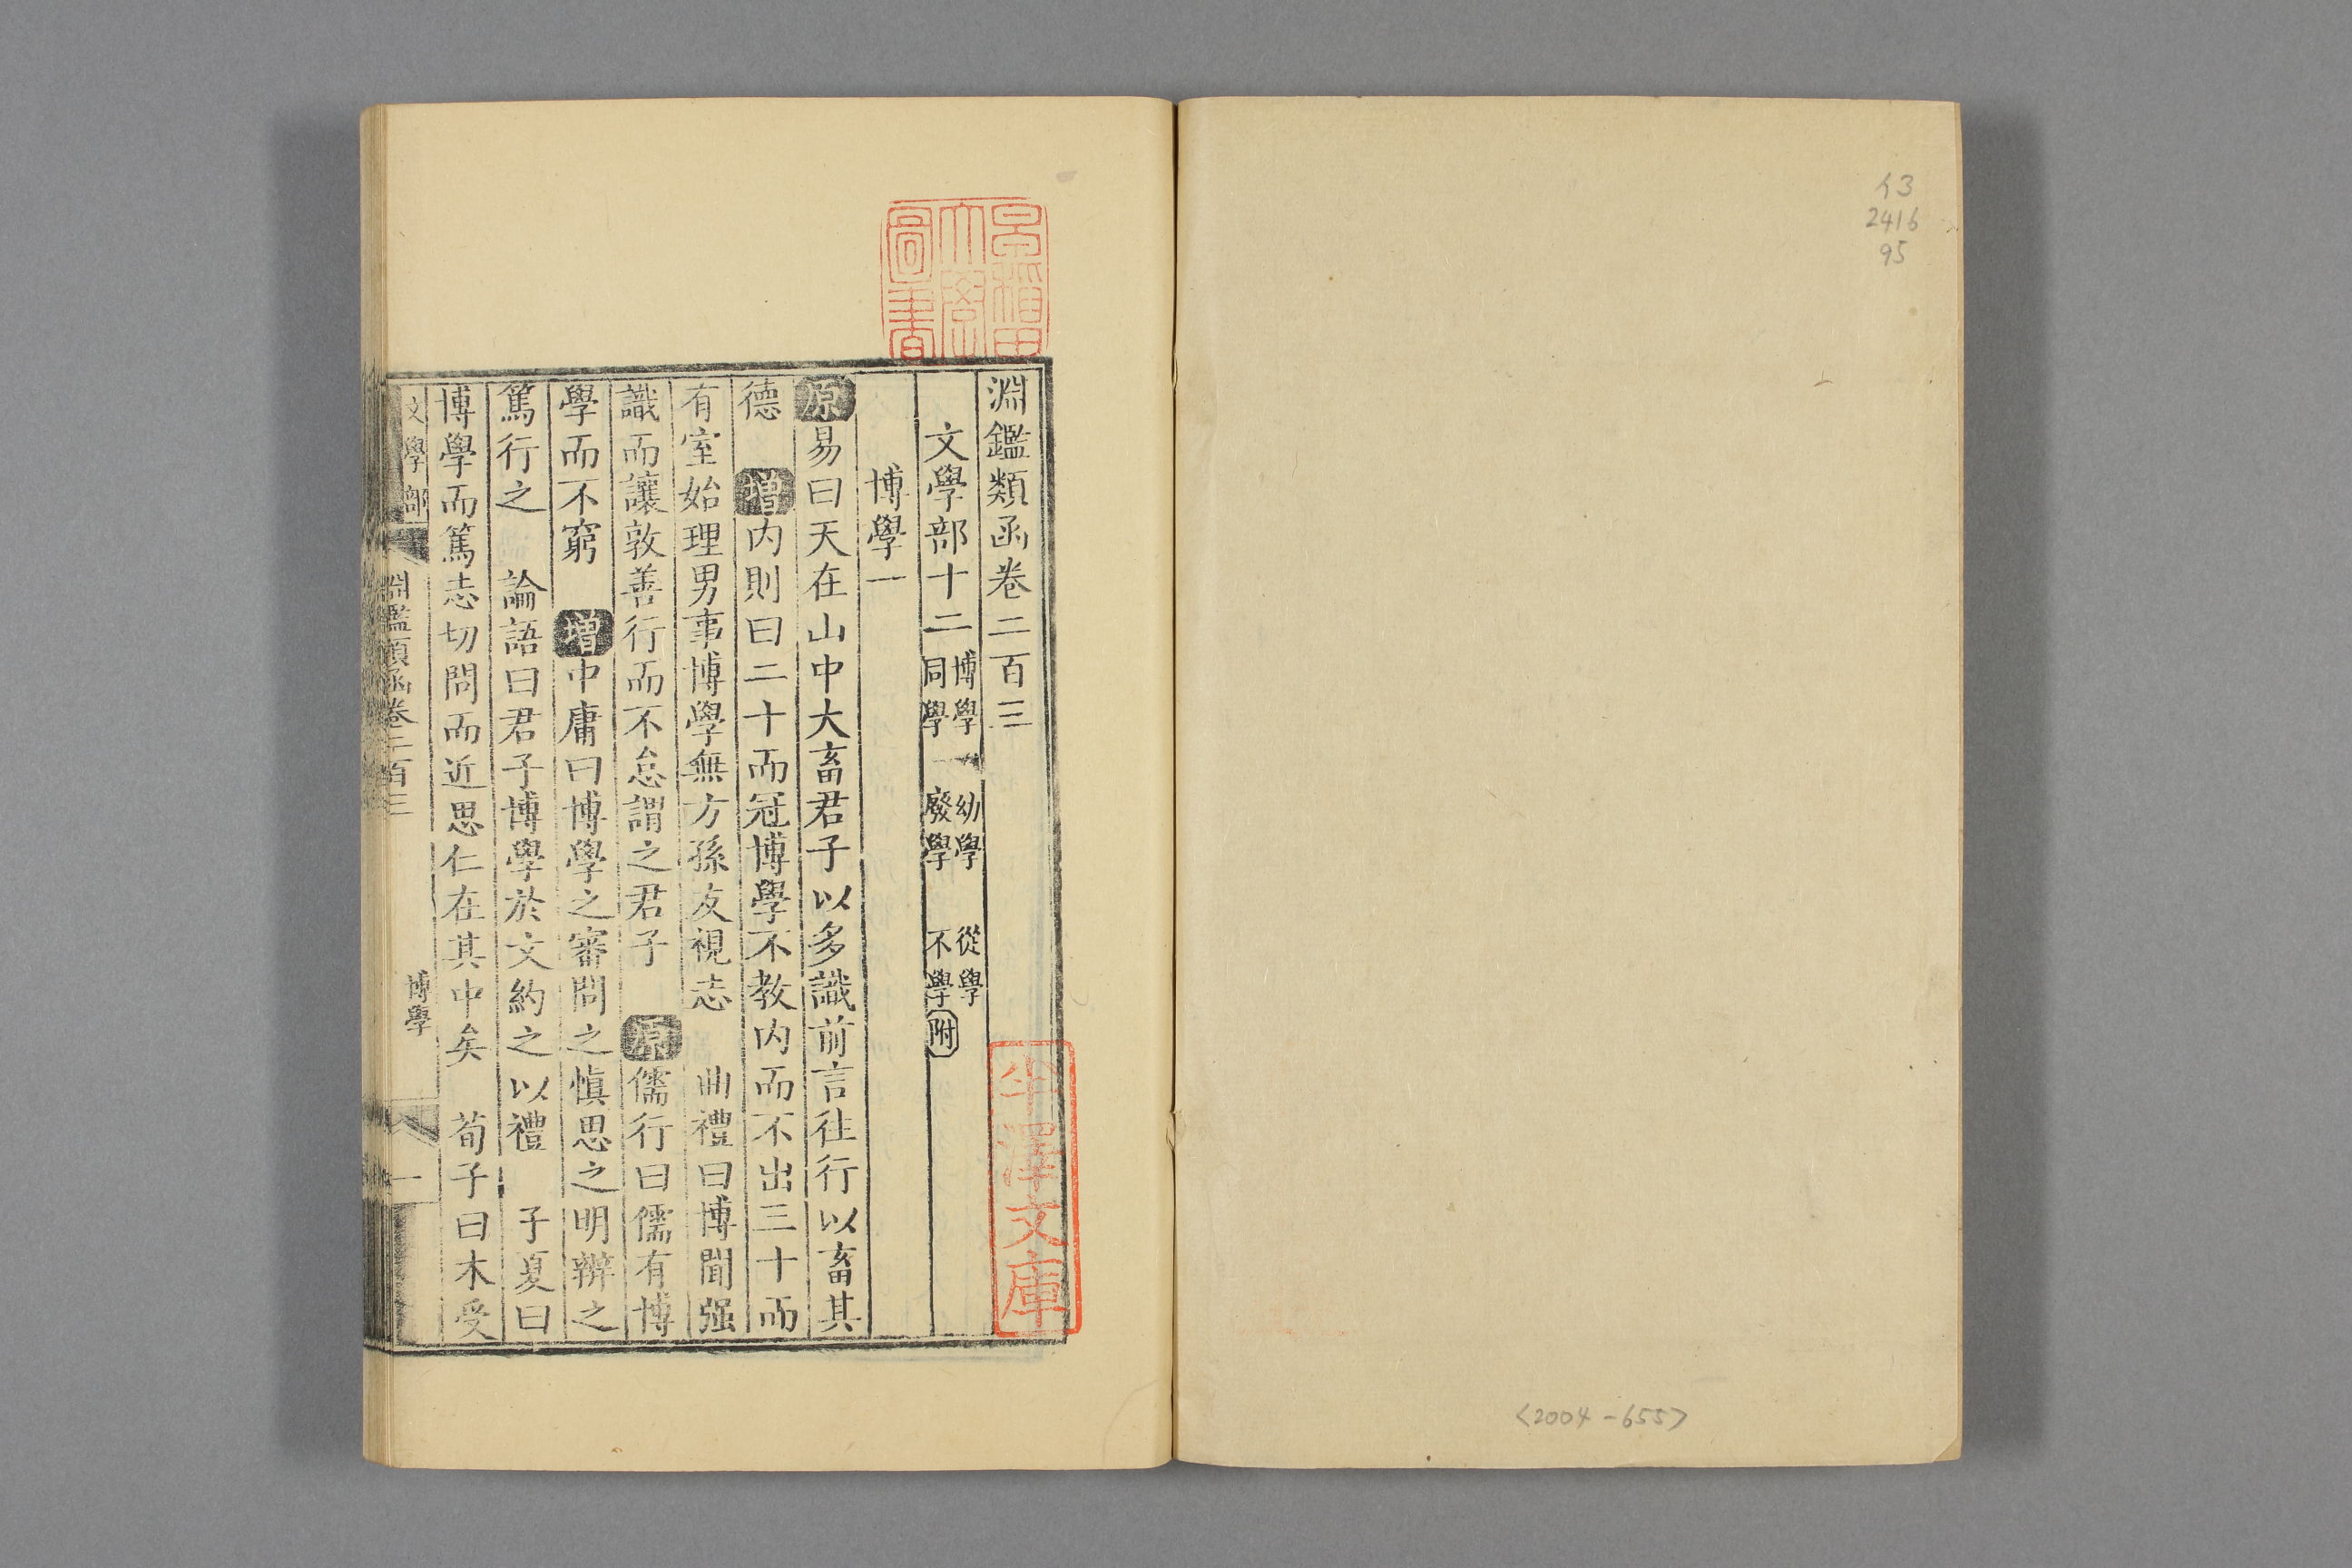 イ3
2416
95
<2004-655>
早稲田
大學
圖書
淵鑑類函卷二百三
文學部十二 博學一 幼學 從學
同學 廢學 不學附
博學一
原易曰天在山中大畜君子以多識前言往行以畜其
德 增內則曰二十而冠博學不教內而不出三十而
有室始理男事博學無方孫友視志 曲禮曰博聞强
識而讓敦善行而不怠謂之君子 原儒行曰儒有博
學而不窮 增中庸曰博學之審問之愼思之明辨之
篤行之 論語曰君子博學於文約之以禮 子夏曰
博學而篤志切問而近思仁在其中矣 荀子曰木受
文學部 淵鑑類函卷二百三 博學 一
澤文庫